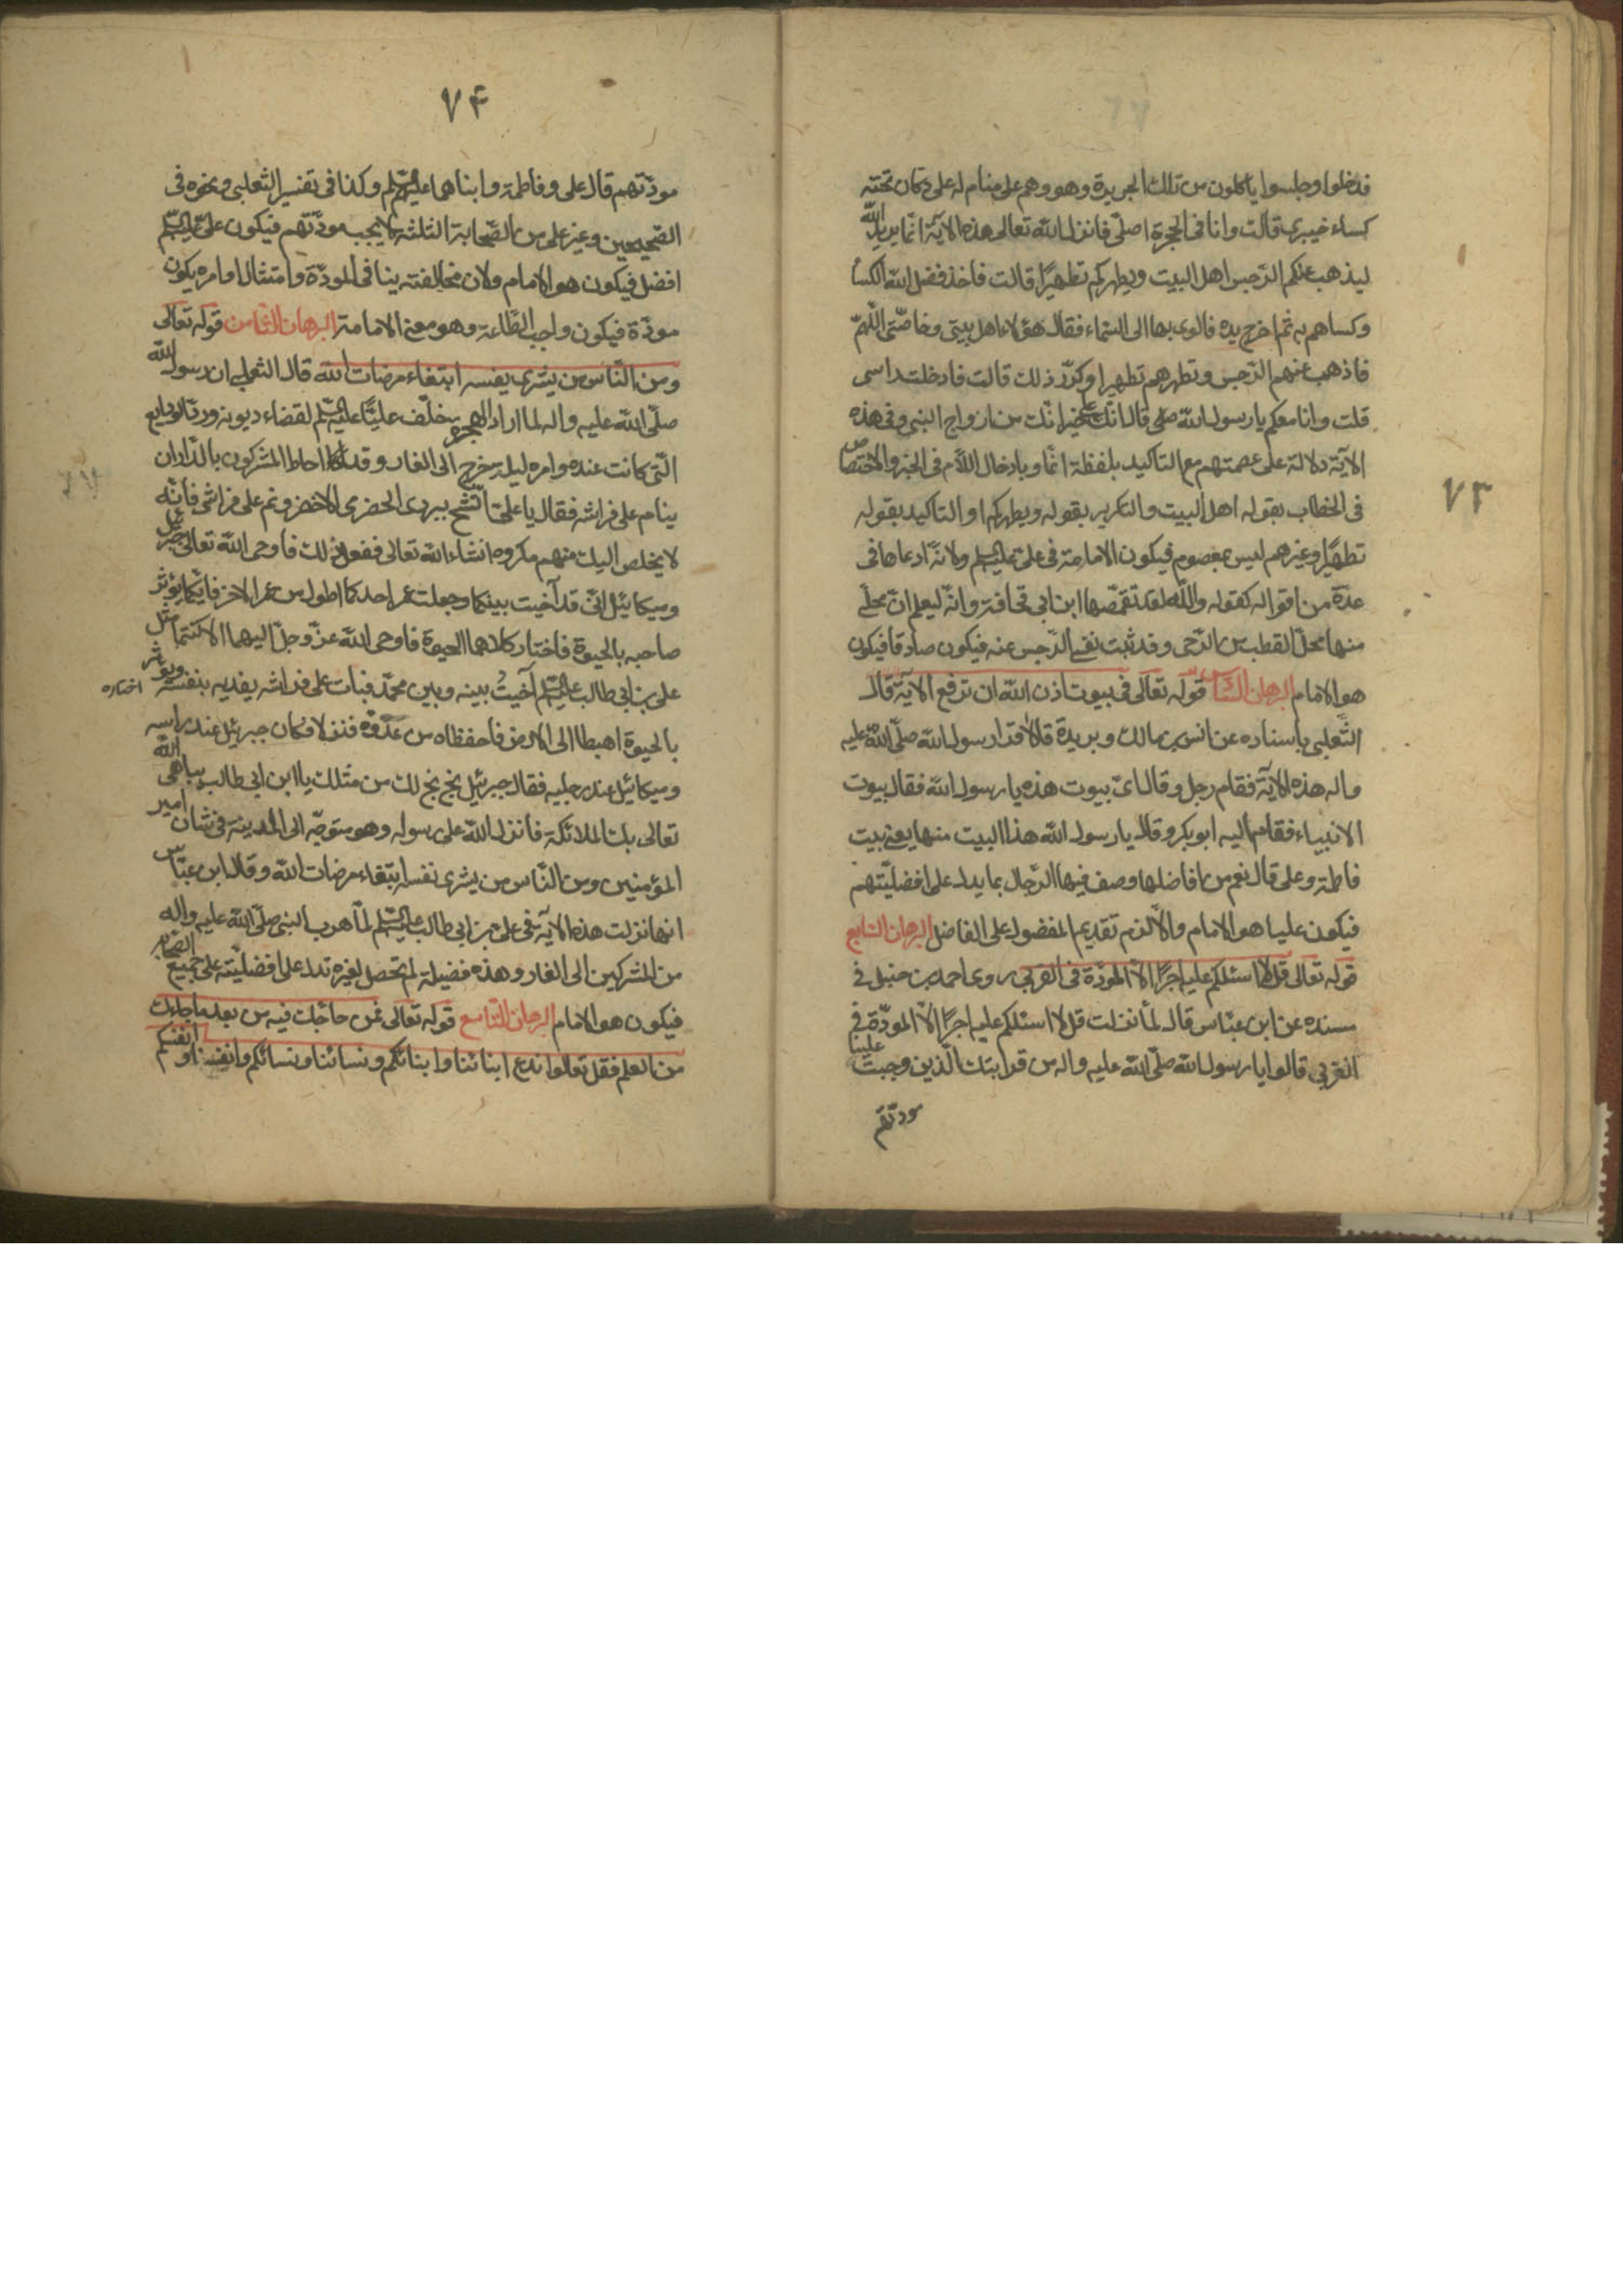 ٧٣
فدخلوا وجلسوا ياكلون من تلك الحريرة وهو وهم على منام له على دكان تحته
كساء خيبرى قالت وانا فى الحجرة اصلّى فانزل الله تعالى هذه الآية انّما يريد الله
ليذهب عنكم الرّجس اهل البيت ويطهركم تطهيرًا قالت فاخذ فضل الكساء
وكساهم به ثم اخرج يده فالوى بها الى السّماء فقال هؤلاء اهل بيتى وخاصّتى اللّهمّ
فاذهب عنهم الرّجس وتطهرهم تطهيرا وكرّر ذلك قالت فادخلت راسى
قلت وانا معكم يا رسول الله صلى قال انّك على خير انّك من ازواج النبى وفى هذه
الآية دلالة على عصمتهم مع التاكيد بلفظة انّما وبادخال اللّام فى الخبر والاختصاص
فى الخطاب بقوله اهل البيت والتكرير بقوله ويطهركم او التاكيد بقوله
تطهيرًا وغيرهم ليس بمعصوم فيكون الامامة فى علىّ عليه السّلم ولانّه ادعاها فى
عدّة من اقواله كقوله واللّه لقد تقمّصها ابن ابى قحافة وانّه ليعلم انّ محلّى
منها محلّ القطب من الرّحى وقد ثبت نفى الرّجس عنه فيكون صادقا فيكون
هو الامام البرهان السّادس قوله تعالى فى بيوت اذن الله ان ترفع الآية قال
الثّعلبى باسناده عن انس بن مالك وبريدة قالا قرا رسول الله صلّى اللّه عليه
واله هذه الآية فقام رجل وقال اىّ بيوت هذه يا رسول الله فقال بيوت
الانبياء فقام اليه ابو بكر وقال يا رسول الله هذا البيت منها يعنى بيت
فاطمة وعلى قال نعم من افاضلها وصف فيها الرّجال بما يدل على افضليّتهم
فيكون عليا هو الامام والّا لزم تقديم المفضول على الفاضل البرهان السّابع
قوله تعالى قل لا اسئلكم عليه اجرًا الّا المودّة فى القربى روى احمد بن حنبل فى
مسنده عن ابن عبّاس قال لمّا نزلت قل لا اسئلكم عليه اجرًا الّا المودّة فى
القربى قالوا يا رسول الله صلّى الله عليه واله من قرابتك الّذين وجبت علينا
مودتهم
٧٤
مودّتهم قال على وفاطمة وابناهما عليهم السّلم وكذا فى تفسير الثعلبى ونحوه فى
الصّحيحين وغير على من الصّحابة الثلثة لا يجب مودّتهم فيكون علىّ عليه السّلم
افضل فيكون هو الامام ولان مخالفته ينافى المودّة وامتثال اوامره يكون
مودّة فيكون واجب الطّاعة وهو معنى الامامة البرهان الثّامن قوله تعالى
ومن النّاس من يشرى نفسه ابتغاء مرضات الله قال الثعلبى ان رسول الله
صلّى الله عليه واله لما اراد الهجرة خلّف عليًّا عليه السّلم لقضاء ديونه وردّ الودايع
الّتى كانت عنده وامره ليلة خرج الى الغار وقد احاط المشركون بالدّار ان
ينام على فراشه فقال يا علىّ اتّشح ببردى الحضرمى الاخضر ونم على فراشى فانّه
لا يخلص اليك منهم مكروه انشاء الله تعالى ففعل ذلك فاوحى الله تعالى الى جبرئيل
وميكائيل انّى قد آخيت بينكما وجعلت عمر احدكما اطول من عمر الاخر فايّكما يؤثر
صاحبه بالحيوة فاختار كلاهما الحيوة فاوحى الله عزّ وجلّ اليهما الا كنتما مثل
على بن ابى طالب عليه السّلم آخيتُ بينه وبين محمّد فبات على فراشه يفديه بنفسه ويؤثره
اختاره
بالحيوة اهبطا الى الارض فاحفظاه من عدّوه فنزلا فكان جبرئيل عند راسه
وميكائيل عند رجليه فقال جبرئيل بخ بخ لك من مثلك يا ابن ابى طالب يباهى الله
تعالى بك الملائكة فانزل الله على رسوله وهو متوجّه الى المدينة فى شان امير
المؤمنين ومن النّاس من يشرى نفسه ابتغاء مرضات الله وقال ابن عبّاس
انها نزلت هذه الآية فى علىّ بن ابى طالب عليه السّلم لمّا هرب النبى صلّى الله عليه واله
من المشركين الى الغار وهذه فضيلة لم تحصل لغيره تدل على افضليّته على جميع الصّحابة
فيكون هو الامام البرهان التّاسع قوله تعالى فمن حاجّك فيه من بعد ما جاءك
من العلم فقل تعالوا ندع ابنائنا وابنائكم ونسائنا ونسائكم وانفسنا وانفسكم